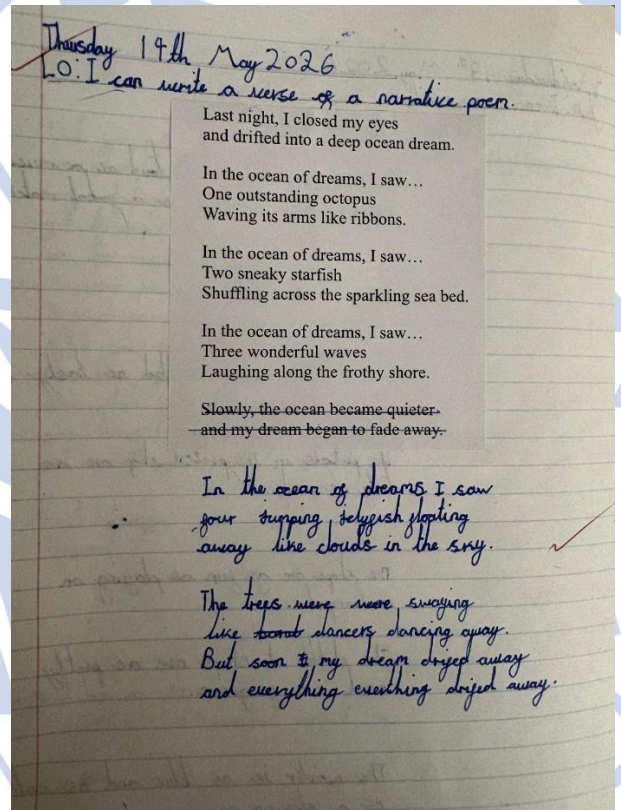 Thursday 14th May 2026
LO: I can write a verse of a narrative poem.
Last night, I closed my eyes
and drifted into a deep ocean dream.
In the ocean of dreams, I saw…
One outstanding octopus
Waving its arms like ribbons.
In the ocean of dreams, I saw…
Two sneaky starfish
Shuffling across the sparkling sea bed.
In the ocean of dreams, I saw…
Three wonderful waves
Laughing along the frothy shore.
Slowly, the ocean became quieter
and my dream began to fade away.
In the ocean of dreams I saw
four jelyfish floating
away like clouds in the sky.
The trees were were swaying
like dancers dancing away.
But soon my dream drifed away
and everything everthing drifed away.